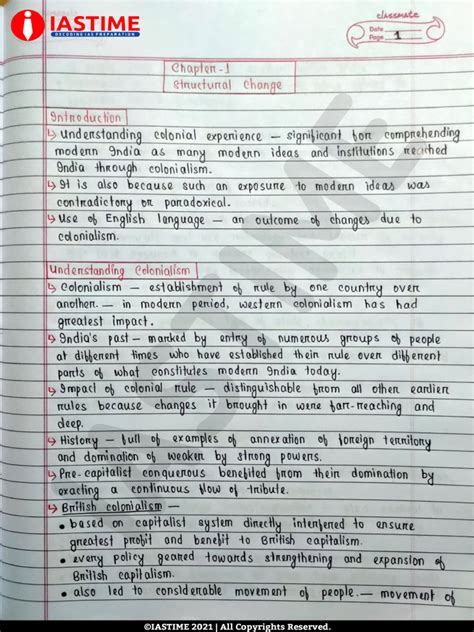 IASTIME
DECODING IAS PREPARATION
classmate
Date
Page 1
Chapter-1
Structural Change
Introduction
↳ Understanding colonial experience — significant for comprehending
modern India as many modern ideas and institutions reached
India through colonialism.
↳ It is also because such an exposure to modern ideas was
contradictory or paradoxical.
↳ Use of English language — an outcome of changes due to
colonialism.
Understanding Colonialism
↳ Colonialism — establishment of rule by one country over
another. — in modern period, western colonialism has had
greatest impact.
↳ India's past — marked by entry of numerous groups of people
at different times who have established their rule over different
parts of what constitutes modern India today.
↳ Impact of colonial rule — distinguishable from all other earlier
rules because changes it brought in were far-reaching and
deep.
↳ History — full of examples of annexation of foreign territory
and domination of weaker by strong powers.
↳ Pre-capitalist conquerous benefited from their domination by
exacting a continuous flow of tribute.
↳ British colonialism —
• based on capitalist system directly interferred to ensure
greatest profit and benefit to British capitalism.
• every policy geared towards strengthening and expansion of
British capitalism.
• also led to considerable movement of people. — movement of
IASTIME
©IASTIME 2021 | All Copyrights Reserved.